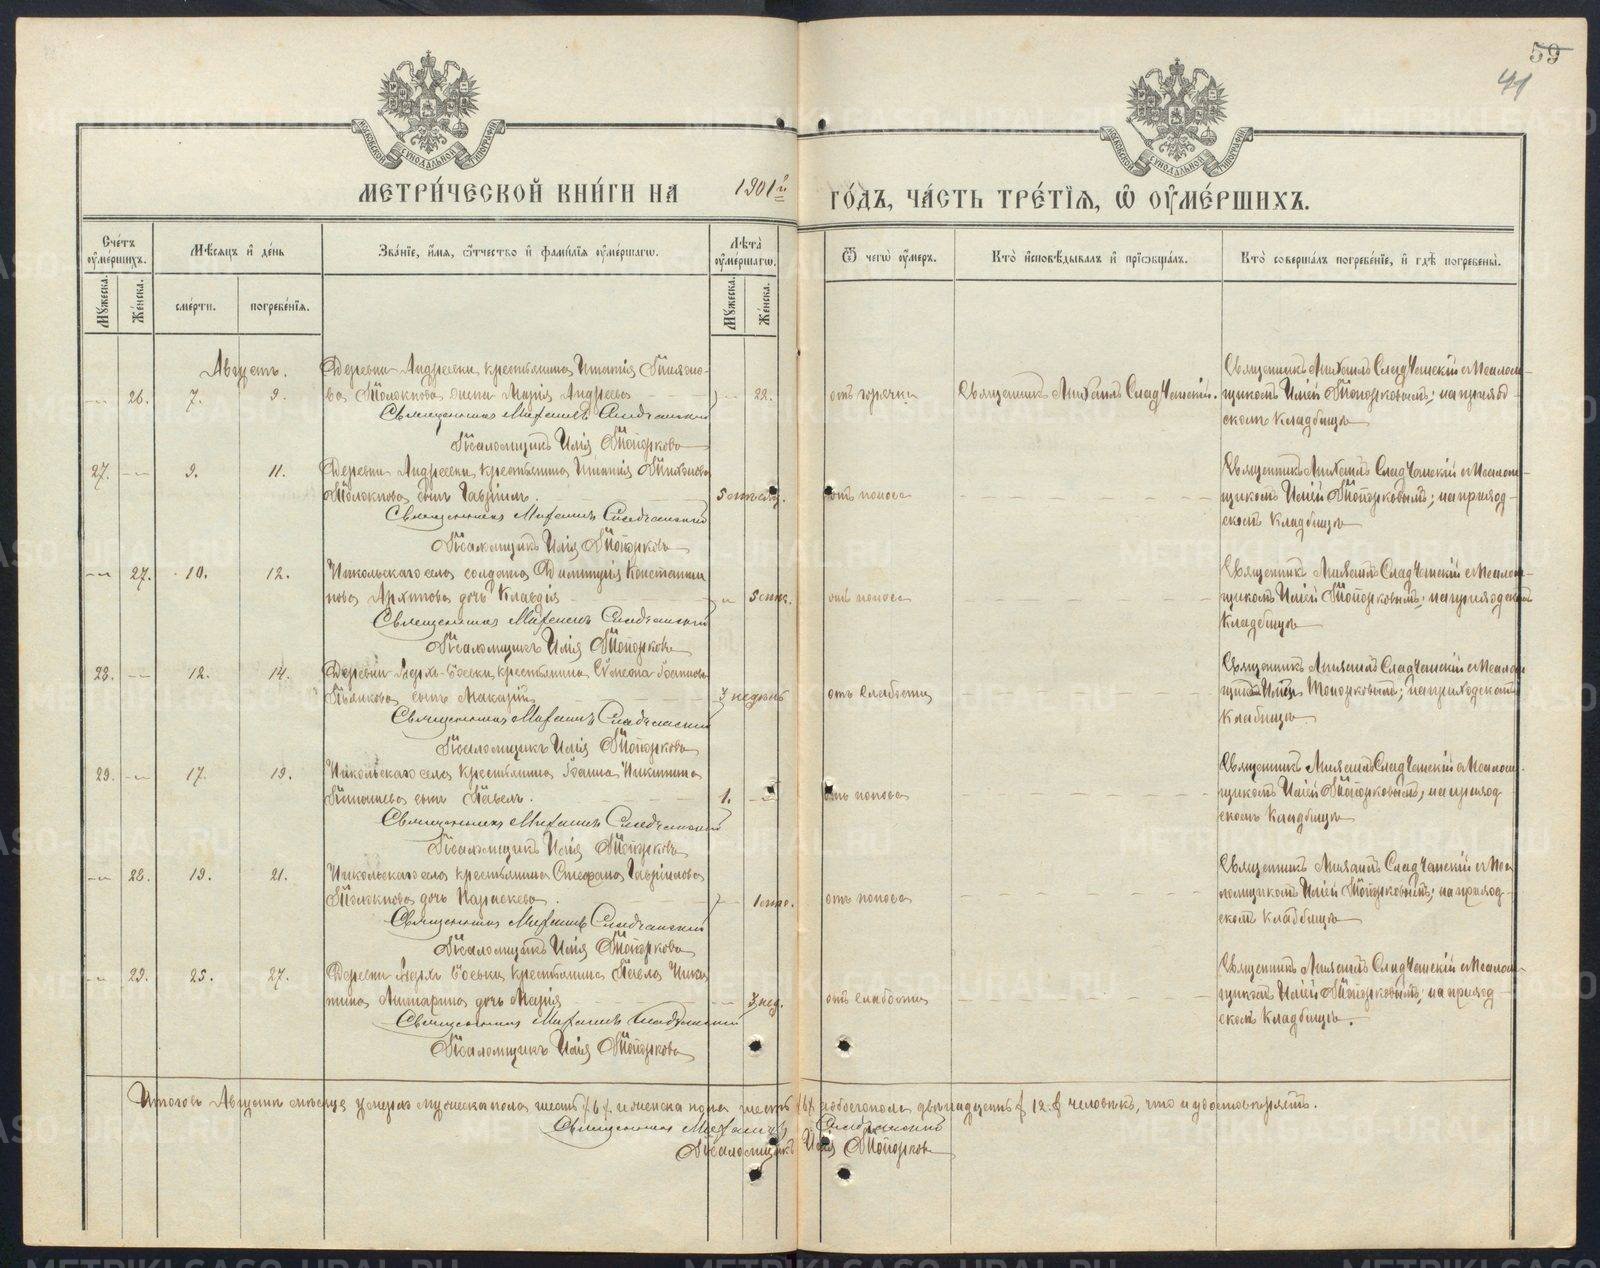 59
41
МОСКОВСКОЙ СѴНОДАЛЬНОЙ ТИПОГРАФІИ
МОСКОВСКОЙ СѴНОДАЛЬНОЙ ТИПОГРАФІИ
МЕТРИ́ЧЕСКОЙ КНИ́ГИ НА 1901й ГО́ДЪ, ЧА́СТЬ ТРЕ́ТІЯ, Ѿ ОУМЕ́РШИХЪ.
Счетъ оумершихъ.
Мѣсяцъ и день
Званіе, имя, отчество и фамилія оумершагѡ.
Лѣта оумершагѡ.
Ѿ чегѡ оумеръ.
Кто исповѣдывалъ и пріобщалъ.
Кто совершалъ погребеніе, и гдѣ погребены.
Мужеска.
Женска.
смерти.
погребенія.
Мужеска.
Женска.
Августъ.
26. 7. 9.
Деревни Андреевки, крестьянина Игнатія
жена Марія Андреева 22.
Священникъ Михаилъ Сладчанскій
Псаломщикъ Илія Топорковъ
отъ горячки
Священникъ Михаилъ Сладчанскій.
Священникъ Михаилъ Сладчанскій и Псалом-
щикомъ Иліей Топорковымъ; на приход-
скомъ кладбищѣ
27. 9. 11.
Деревни Андреевки, крестьянина Игнатія
сынъ Гавріилъ.
Священникъ Михаилъ Сладчанскій
Псаломщикъ Илія Топорковъ
отъ поноса
Священникъ Михаилъ Сладчанскій и Псалом-
щикомъ Иліей Топорковымъ; на приход-
скомъ кладбищѣ
27. 10. 12.
Никольскаго села солдата Димитрія Константи-
нова Архипова дочь Клавдія 5
Священникъ Михаилъ Сладчанскій
Псаломщикъ Илія Топорковъ
отъ поноса
Священникъ Михаилъ Сладчанскій и Псалом-
щикомъ Иліей Топорковымъ; на приходскомъ
кладбищѣ
28. 12. 14.
Деревни крестьянина Сѵмеона Іоаннова
сынъ Макарій 3 недѣль
Священникъ Михаилъ Сладчанскій
Псаломщикъ Илія Топорковъ
отъ слабости
Священникъ Михаилъ Сладчанскій и Псалом-
щикомъ Иліей Топорковымъ; на приходскомъ
кладбищѣ
29. 17. 19.
Никольскаго села крестьянина Іоанна Никитина
сынъ Павелъ. 1.
Священникъ Михаилъ Сладчанскій
Псаломщикъ Илія Топорковъ
отъ поноса
Священникъ Михаилъ Сладчанскій и Псалом-
щикомъ Иліей Топорковымъ; на приход-
скомъ кладбищѣ
28. 19. 21.
Никольскаго села крестьянина Стефана Гавріилова
дочь Параскева.
Священникъ Михаилъ Сладчанскій
Псаломщикъ Илія Топорковъ
отъ поноса
Священникъ Михаилъ Сладчанскій и Пса-
ломщикомъ Иліей Топорковымъ; на приход-
скомъ кладбищѣ
29. 25. 27.
Деревни крестьянина Павла Ники-
тина дочь Марія 3 нед.
Священникъ Михаилъ Сладчанскій
Псаломщикъ Илія Топорковъ
отъ слабости
Священникъ Михаилъ Сладчанскій и Псалом-
щикомъ Иліей Топорковымъ; на приход-
скомъ кладбищѣ.
Итого въ Августѣ мѣсяцѣ умерло мужеска пола шесть /6/ и женска пола шесть /6/ а обоего пола двѣнадцать /12/ человѣкъ, что и удостовѣряемъ.
Священникъ Михаилъ Сладчанскій
Псаломщикъ Илія Топорковъ